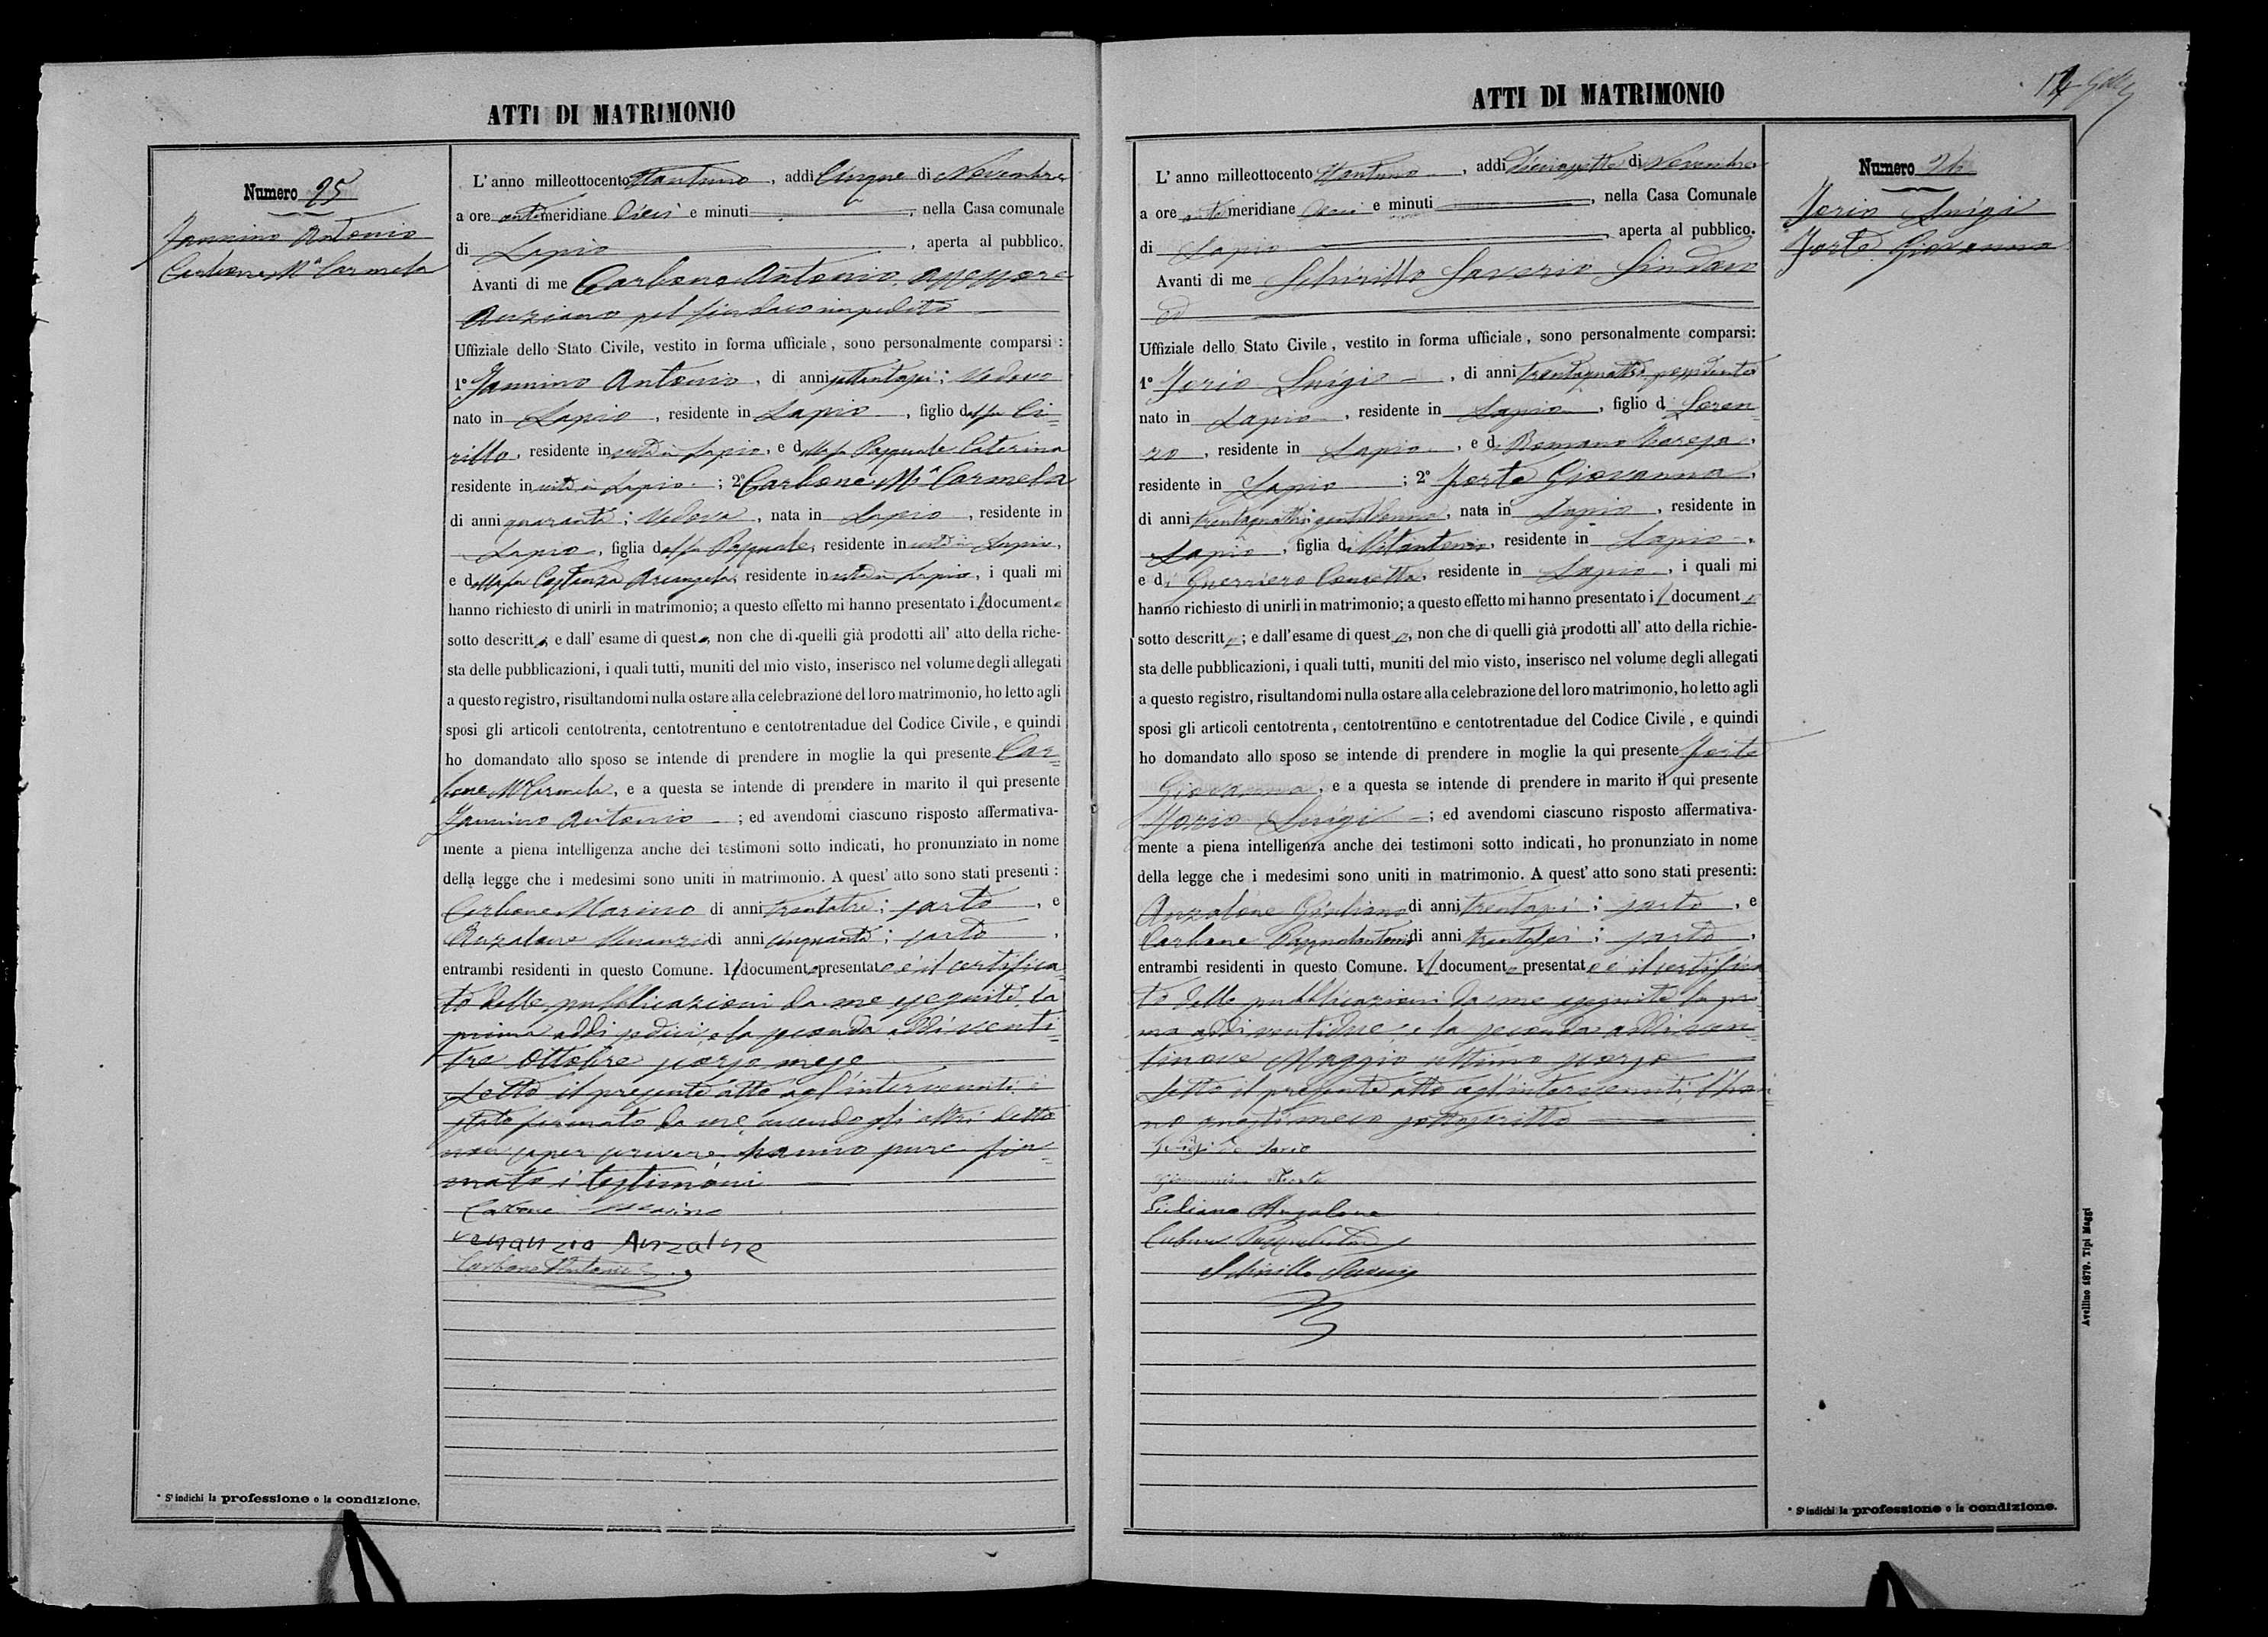 ATTI DI MATRIMONIO
Numero 25
Jannino Antonio
Carbone Mª Carmela
L' anno milleottocento ottantuno, addì Cinque di Novembre
a ore antimeridiane dieci e minuti, nella Casa comunale
di Lapio, aperta al pubblico.
Avanti di me Carbone Antonio, assessore
Anziano pel Sindaco impedito
Uffiziale dello Stato Civile, vestito in forma ufficiale, sono personalmente comparsi :
1º Jannino Antonio, di anni settantasei; Vedovo
nato in Lapio, residente in Lapio, figlio del fu Ci-
rillo, residente in vita in Lapio, e della fu Pasquale Caterina
residente in vita in Lapio; 2º Carbone Mª Carmela
di anni quaranta; Vedova, nata in Lapio, residente in
Lapio, figlia del fu Pasquale, residente in vita in Lapio,
e della fu Costanza Arcangela, residente in vita in Lapio, i quali mi
hanno richiesto di unirli in matrimonio; a questo effetto mi hanno presentato il documento
sotto descritto; e dall' esame di questo, non che di quelli già prodotti all' atto della riche-
sta delle pubblicazioni, i quali tutti, muniti del mio visto, inserisco nel volume degli allegati
a questo registro, risultandomi nulla ostare alla celebrazione del loro matrimonio, ho letto agli
sposi gli articoli centotrenta, centotrentuno e centotrentadue del Codice Civile, e quindi
ho domandato allo sposo se intende di prendere in moglie la qui presente Car-
bone Mª Carmela, e a questa se intende di prendere in marito il qui presente
Jannino Antonio; ed avendomi ciascuno risposto affermativa-
mente a piena intelligenza anche dei testimoni sotto indicati, ho pronunziato in nome
della legge che i medesimi sono uniti in matrimonio. A quest' atto sono stati presenti :
Carbone Marino di anni trentatre; sarto, e
Anzalone Venanzio di anni cinquanta; sarto,
entrambi residenti in questo Comune. Il documento presentato è il certifica-
to delle pubblicazioni da me eseguite la
prima addì sedici, e la seconda addì venti-
tre Ottobre scorso mese
Letto il presente atto agl'intervenuti è
stato firmato da me, avendo gli altri detto
non saper scrivere, hanno pure fir-
mato i testimoni
Carbone Marino
venanzio Anzalone
Carbone Antonio
* S' indichi la professione o la condizione.
ATTI DI MATRIMONIO
L' anno milleottocento ottantuno, addì Diciassette di Novembre
a ore antimeridiane dieci e minuti, nella Casa Comunale
di Lapio aperta al pubblico.
Avanti di me Schirillo Saverio Sindaco
ed
Uffiziale dello Stato Civile, vestito in forma ufficiale, sono personalmente comparsi:
1º Jorio Luigi, di anni trentaquattro, possidente
nato in Lapio, residente in Lapio, figlio di Loren-
zo, residente in Lapio, e di Romano Teresa,
residente in Lapio; 2º Forte Giovanna,
di anni trentaquattro; gentildonna, nata in Lapio, residente in
Lapio, figlia di Vitantonio, residente in Lapio,
e di Guerriero Concetta, residente in Lapio, i quali mi
hanno richiesto di unirli in matrimonio; a questo effetto mi hanno presentato il documento
sotto descritto; e dall' esame di questo, non che di quelli già prodotti all' atto della richie-
sta delle pubblicazioni, i quali tutti, muniti del mio visto, inserisco nel volume degli allegati
a questo registro, risultandomi nulla ostare alla celebrazione del loro matrimonio, ho letto agli
sposi gli articoli centotrenta, centotrentuno e centotrentadue del Codice Civile, e quindi
ho domandato allo sposo se intende di prendere in moglie la qui presente Forte
Giovanna, e a questa se intende di prendere in marito il qui presente
Jorio Luigi; ed avendomi ciascuno risposto affermativa-
mente a piena intelligenza anche dei testimoni sotto indicati, ho pronunziato in nome
della legge che i medesimi sono uniti in matrimonio. A quest' atto sono stati presenti:
Anzalone Giuliano di anni trentasei; sarto, e
Carbone Pasqualantonio di anni trentasei; sarto,
entrambi residenti in questo Comune. Il documento presentato è il certifica-
to delle pubblicazioni da me eseguite la pri-
ma addì ventidue, e la seconda addì ven-
tinove Maggio ultimo scorso
Letto il presente atto agl'intervenuti, l'han-
no questi meco sottoscritto
Luigi de Iorio
Giovannina Forte
Giuliano Anzalone
Carbone Pasqualantonio
Schirillo Saverio
Numero 26
Jorio Luigi
Forte Giovanna
* S' indichi la professione o la condizione.
Avellino 1879. Tipi Maggi